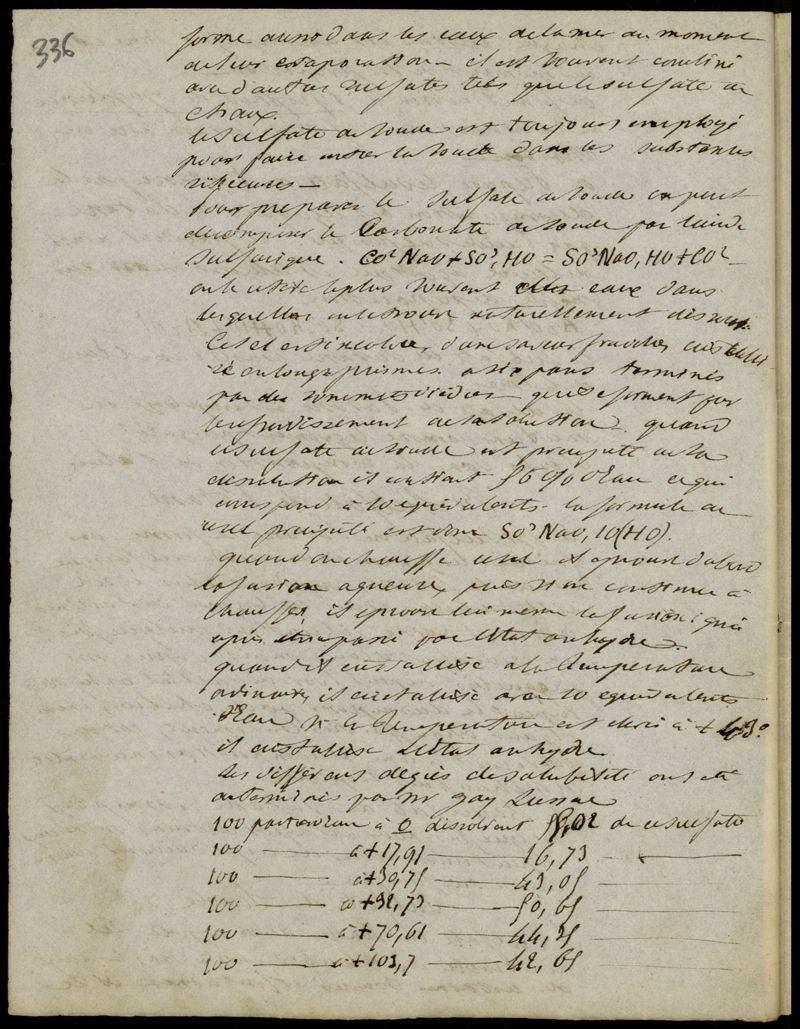 336
forme aussi dans les eaux de la mer au moment
de leur evaporation - il est souvent combiné
avec d'autres sulfates tels que le sulfate de
chaux.
le sulfate de soude est toujours employé
pour faire entrer la soude dans les substances
vitreuses -
Pour preparer le sulfate de soude on peut
decomposer le Carbonate de soude par l'acide
sulfurique. CO² NaO + SO³, HO = SO³ NaO, HO + CO² -
on le retire le plus souvent des eaux dans
lesquelles on le trouve naturellement dissous.
Ce sel est incolore, d'une saveur fraiche, cristalli
sé en longs prismes a six pans terminés
par des sommets diedres - qui se forment par
le refroidissement de la solution. quand
le sulfate de soude est precipité de sa
dissolution il contient 56 % d'eau ce qui
correspond à 10 equivalents. la formule du
sel precipité est donc SO³ NaO, 10(HO).
quand on chauffe ce sel il eprouve d'abord
la fusion aqueuse, puis si on continue à
chauffer, il eprouve lui meme la fusion ignée
après etre passé par l'état anhydre.
quand il cristallise a la temperature
ordinaire, il cristallise avec 10 equivalents
d'eau si la temperature est elevé à +
il cristallise à l'état anhydre
les différens degrés de solubilité ont été
determinés par mr gay Lussac
100 parties d'eau à 0 dissolvent 5,02 de ce sulfate
100 — à + 17,91 — 16,73 —
100 — à + 30,75 — 43,05 —
100 — à + 32,73 — 50,65 —
100 — à + 70,61 — 44,35 —
100 — à + 103,7 — 42,65 —